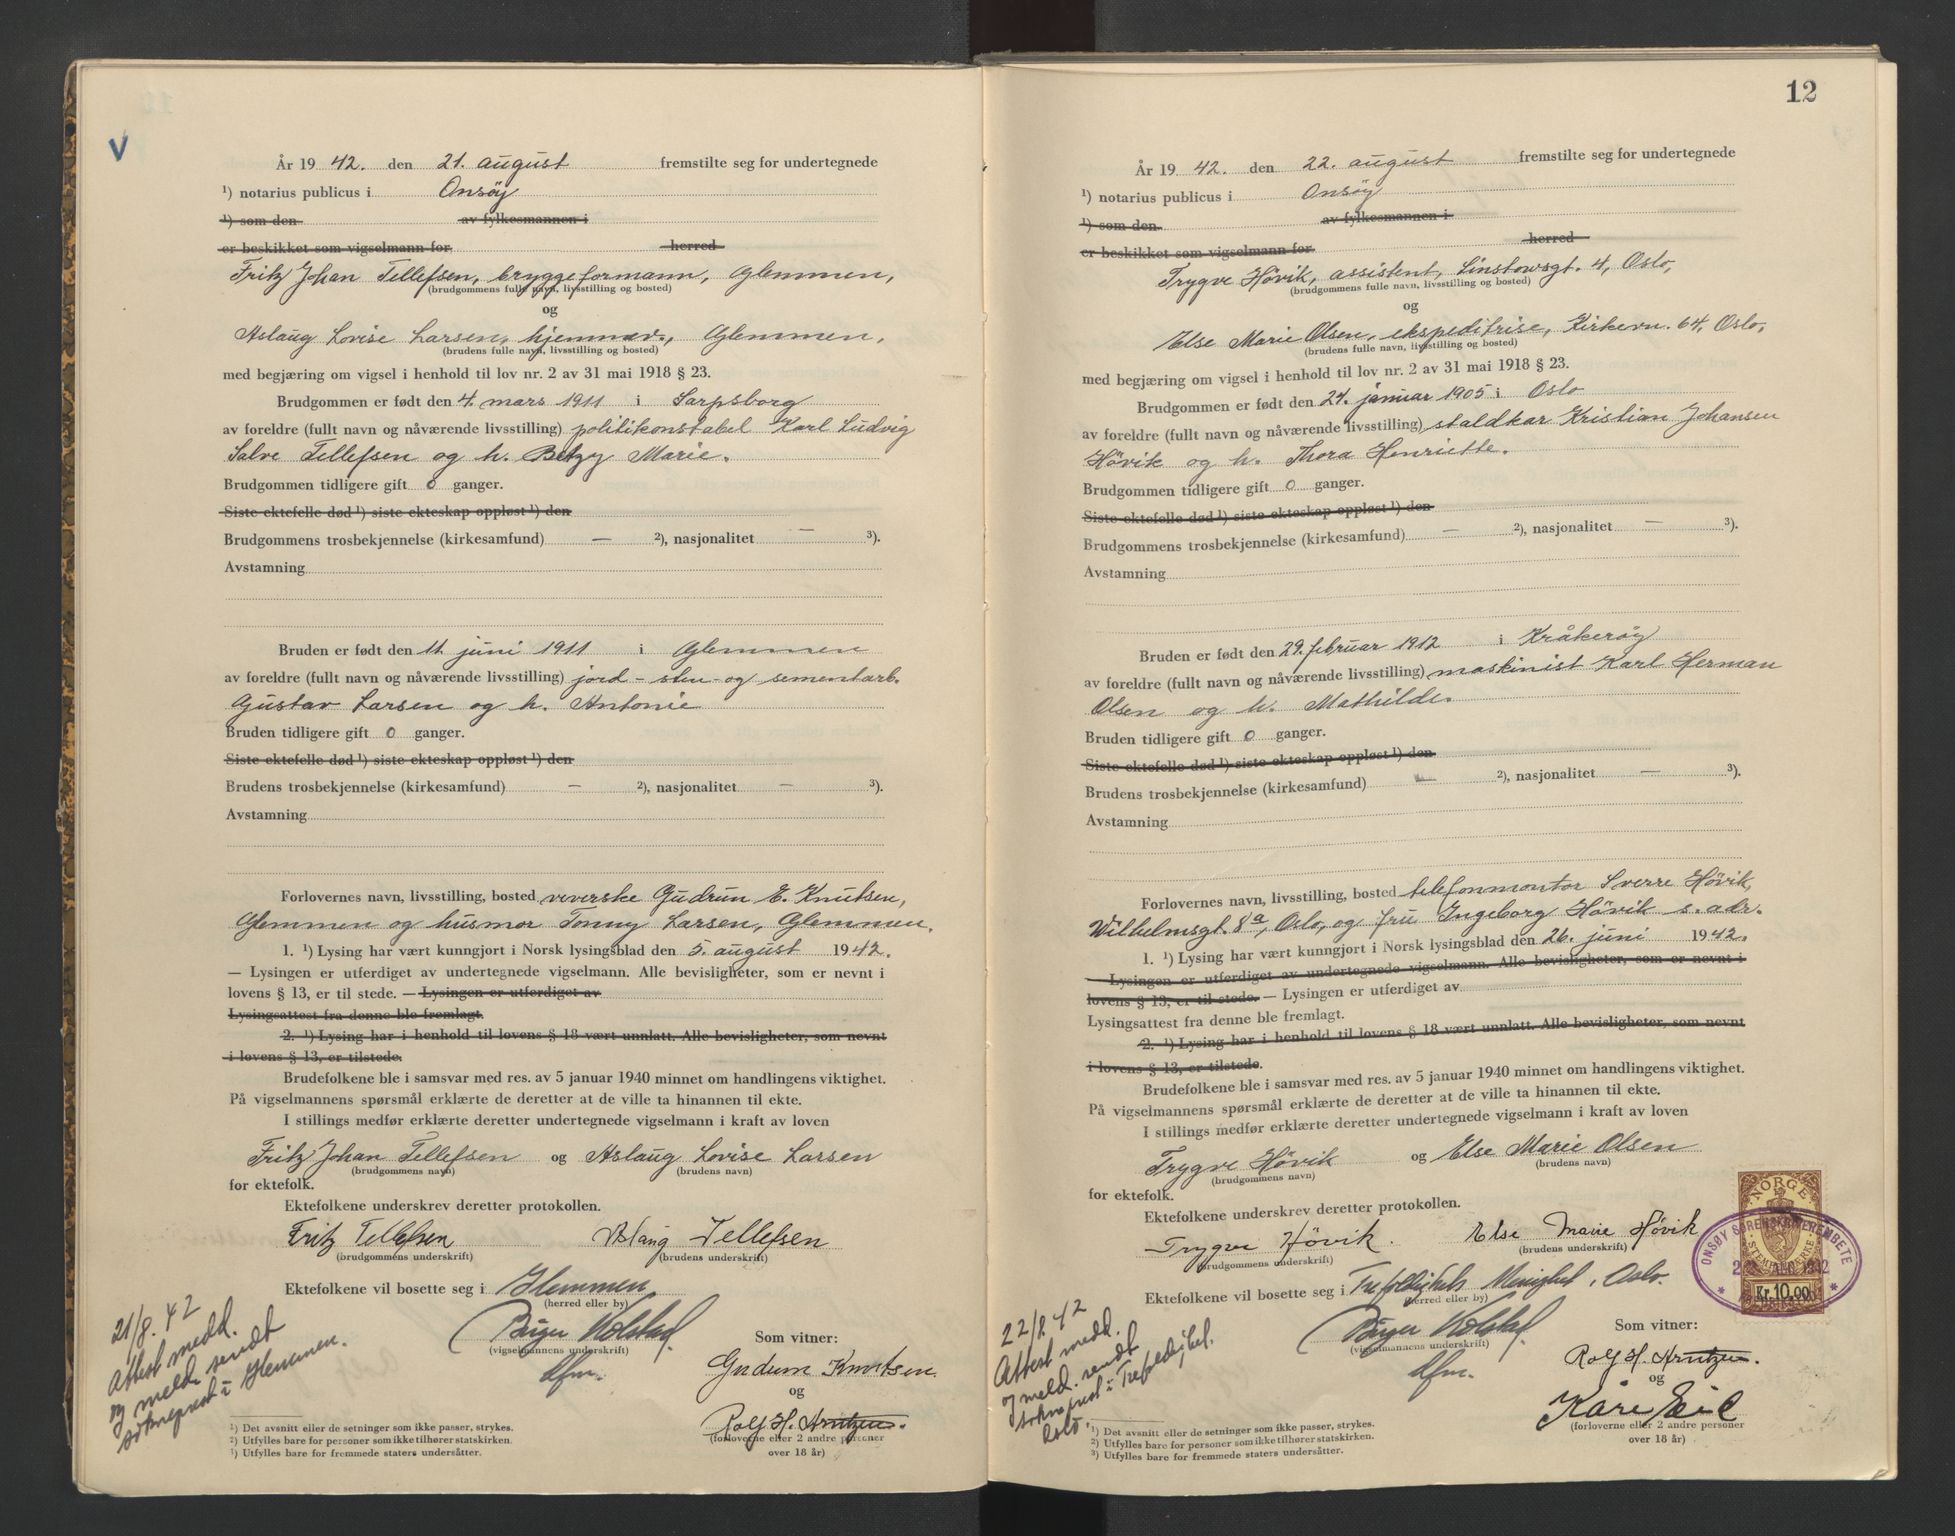 V
År 19 42. den 21. august fremstilte seg for undertegnede
¹) notarius publicus i Onsøy
¹) som den av fylkesmannen i
er beskikket som vigselmann for herred
Fritz Johan Tellefsen, bryggeformann, Glemmen,
(brudgommens fulle navn, livsstilling og bosted)
og
Aslaug Lovise Larsen, hjemmev., Glemmen,
(brudens fulle navn, livsstilling og bosted)
med begjæring om vigsel i henhold til lov nr. 2 av 31 mai 1918 § 23.
Brudgommen er født den 4. mars 1911 i Sarpsborg
av foreldre (fullt navn og nåværende livsstilling) politikonstabel Karl Ludvig
Salve Tellefsen og h. Betzy Marie.
Brudgommen tidligere gift 0 ganger.
Siste ektefelle død ¹) siste ekteskap oppløst ¹) den
Brudgommens trosbekjennelse (kirkesamfund) — ²), nasjonalitet — ³).
Avstamning
Bruden er født den 11. juni 1911 i Glemmen
av foreldre (fullt navn og nåværende livsstilling) jord- sten- og sementarb.
Gustav Larsen og h. Antonie
Bruden tidligere gift 0 ganger.
Siste ektefelle død ¹) siste ekteskap oppløst ¹) den
Brudens trosbekjennelse (kirkesamfund) — ²), nasjonalitet — ³).
Avstamning
Forlovernes navn, livsstilling, bosted veverske Gudrun E. Knutsen,
Glemmen og husmor Tonny Larsen, Glemmen.
1. ¹) Lysing har vært kunngjort i Norsk lysingsblad den 5. august 1942.
— Lysingen er utferdiget av undertegnede vigselmann. Alle bevisligheter, som er nevnt i
lovens § 13, er til stede. — Lysingen er utferdiget av
Lysingsattest fra denne ble fremlagt.
2. ¹) Lysing har i henhold til lovens § 18 vært unnlatt. Alle bevisligheter, som nevnt
i lovens § 13, er tilstede.
Brudefolkene ble i samsvar med res. av 5 januar 1940 minnet om handlingens viktighet.
På vigselmannens spørsmål erklærte de deretter at de ville ta hinannen til ekte.
I stillings medfør erklærte deretter undertegnede vigselmann i kraft av loven
Fritz Johan Tellefsen og Aslaug Lovise Larsen
(brudgommens navn) (brudens navn)
for ektefolk.
Ektefolkene underskrev deretter protokollen.
Fritz Tellefsen Aslaug Tellefsen
(brudgommens underskrift) (brudens underskrift)
Ektefolkene vil bosette seg i Glemmen
(herred eller by)
Birger Kolstad
(vigselmannens underskrift)
Som vitner:
Gudrun Knutsen
og
Rolf H. Arntzen.
(forloverne eller 2 andre personer
over 18 år)
21/8.42
Attest medd.
og meld. sendt
sokneprest i Glemmen.
¹) Det avsnitt eller de setninger som ikke passer, strykes.
²) Utfylles bare for personer som ikke tilhører statskirken.
³) Utfylles bare for fremmede staters undersåtter.
12
År 19 42. den 22. august fremstilte seg for undertegnede
¹) notarius publicus i Onsøy
¹) som den av fylkesmannen i
er beskikket som vigselmann for herred
Trygve Hövik, assistent, Linstowsgt. 4, Oslo,
(brudgommens fulle navn, livsstilling og bosted)
og
Else Marie Olsen, ekspeditrise, Kirkevn. 64, Oslo,
(brudens fulle navn, livsstilling og bosted)
med begjæring om vigsel i henhold til lov nr. 2 av 31 mai 1918 § 23.
Brudgommen er født den 24. januar 1905 i Oslo
av foreldre (fullt navn og nåværende livsstilling) staldkar Kristian Johansen
Hövik og h. Thora Henriette.
Brudgommen tidligere gift 0 ganger.
Siste ektefelle død ¹) siste ekteskap oppløst ¹) den
Brudgommens trosbekjennelse (kirkesamfund) — ²), nasjonalitet — ³).
Avstamning
Bruden er født den 29. februar 1912 i Kråkerøy
av foreldre (fullt navn og nåværende livsstilling) maskinist Karl Herman
Olsen og h. Mathilde.
Bruden tidligere gift 0 ganger.
Siste ektefelle død ¹) siste ekteskap oppløst ¹) den
Brudens trosbekjennelse (kirkesamfund) — ²), nasjonalitet — ³).
Avstamning
Forlovernes navn, livsstilling, bosted telefonmontør Sverre Hövik,
Wilhelmsgt. 8a, Oslo, og fru Ingeborg Hövik s. adr.
1. ¹) Lysing har vært kunngjort i Norsk lysingsblad den 26. juni 1942.
— Lysingen er utferdiget av undertegnede vigselmann. Alle bevisligheter, som er nevnt i
lovens § 13, er til stede. — Lysingen er utferdiget av
Lysingsattest fra denne ble fremlagt.
2. ¹) Lysing har i henhold til lovens § 18 vært unnlatt. Alle bevisligheter, som nevnt
i lovens § 13, er tilstede.
Brudefolkene ble i samsvar med res. av 5 januar 1940 minnet om handlingens viktighet.
På vigselmannens spørsmål erklærte de deretter at de ville ta hinannen til ekte.
I stillings medfør erklærte deretter undertegnede vigselmann i kraft av loven
Trygve Hövik og Else Marie Olsen
(brudgommens navn) (brudens navn)
for ektefolk.
Ektefolkene underskrev deretter protokollen.
Trygve Hövik. Else Marie Hövik
(brudgommens underskrift) (brudens underskrift)
Ektefolkene vil bosette seg i Trefoldighets Menighet, Oslo.
(herred eller by)
Birger Kolstad
(vigselmannens underskrift)
NORGE
STEMPELMERKE
Kr. 10.00
ONSØY SORENSKRIVEREMBETE
Som vitner:
Rolf H. Arntzen.
og
Kåre
(forloverne eller 2 andre personer
over 18 år)
22/8 42
Attest medd.
og meld. sendt
sokneprest i Trefoldighet.
Oslo.
¹) Det avsnitt eller de setninger som ikke passer, strykes.
²) Utfylles bare for personer som ikke tilhører statskirken.
³) Utfylles bare for fremmede staters undersåtter.